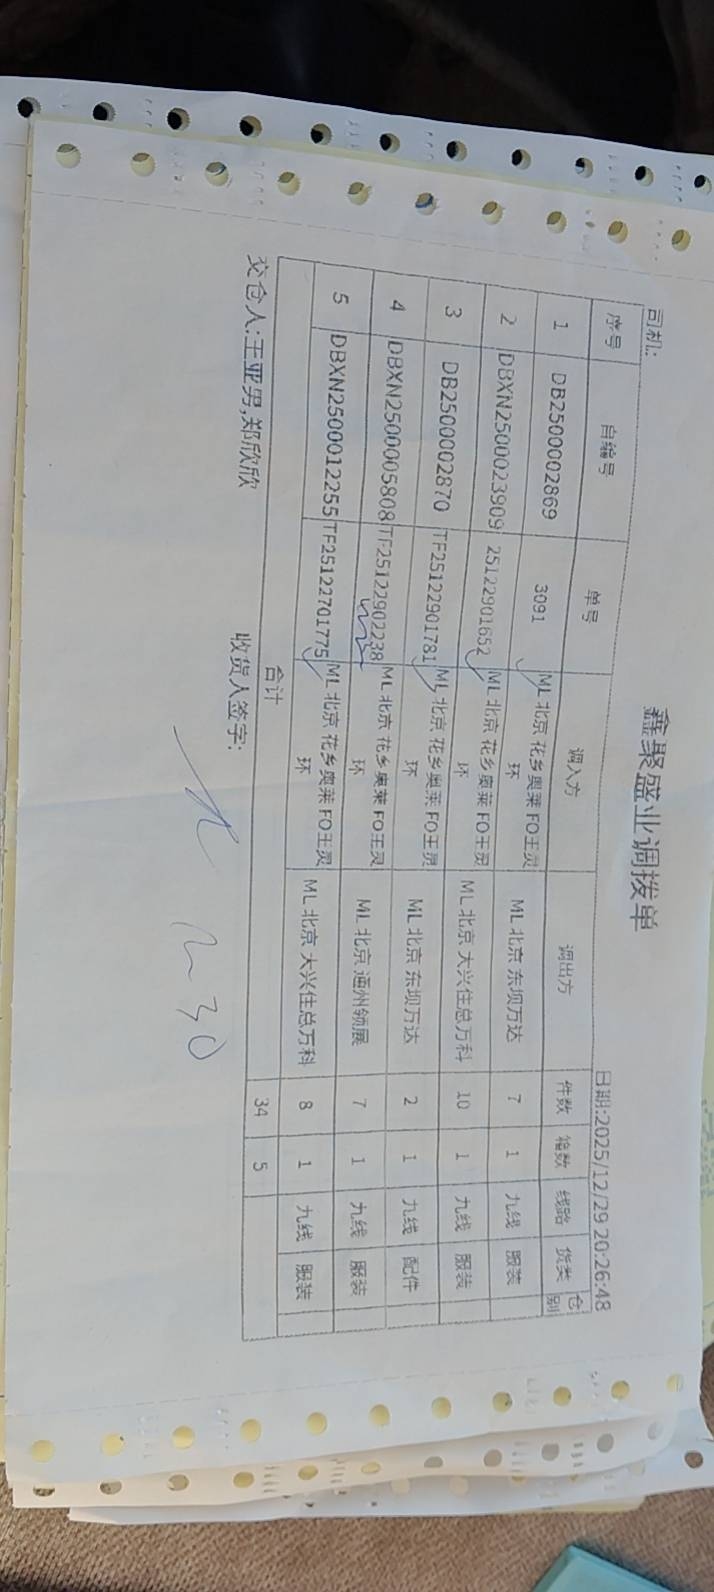 鑫聚盛业调拨单
司机: 日期:2025/12/29 20:26:48
序号 自编号 单号 调入方 调出方 件数 箱数 线路 货类 仓别
1 DB2500002869 3091 ML 北京 花乡奥莱 FO王灵环 ML 北京 东坝万达 7 1 九线 服装
2 DBXN2500023909 25122901652 ML 北京 花乡奥莱 FO王灵环 ML 北京 大兴住总万科 10 1 九线 服装
3 DB2500002870 TF25122901781 ML 北京 花乡奥莱 FO王灵环 ML 北京 东坝万达 2 1 九线 配件
4 DBXN2500005808 TF25122902238 ML 北京 花乡奥莱 FO王灵环 ML 北京 通州领展 7 1 九线 服装
5 DBXN2500012255 TF25122701775 ML 北京 花乡奥莱 FO王灵环 ML 北京 大兴住总万科 8 1 九线 服装
合计 34 5
交仓人:王亚男,郑欣欣 收货人签字:
30